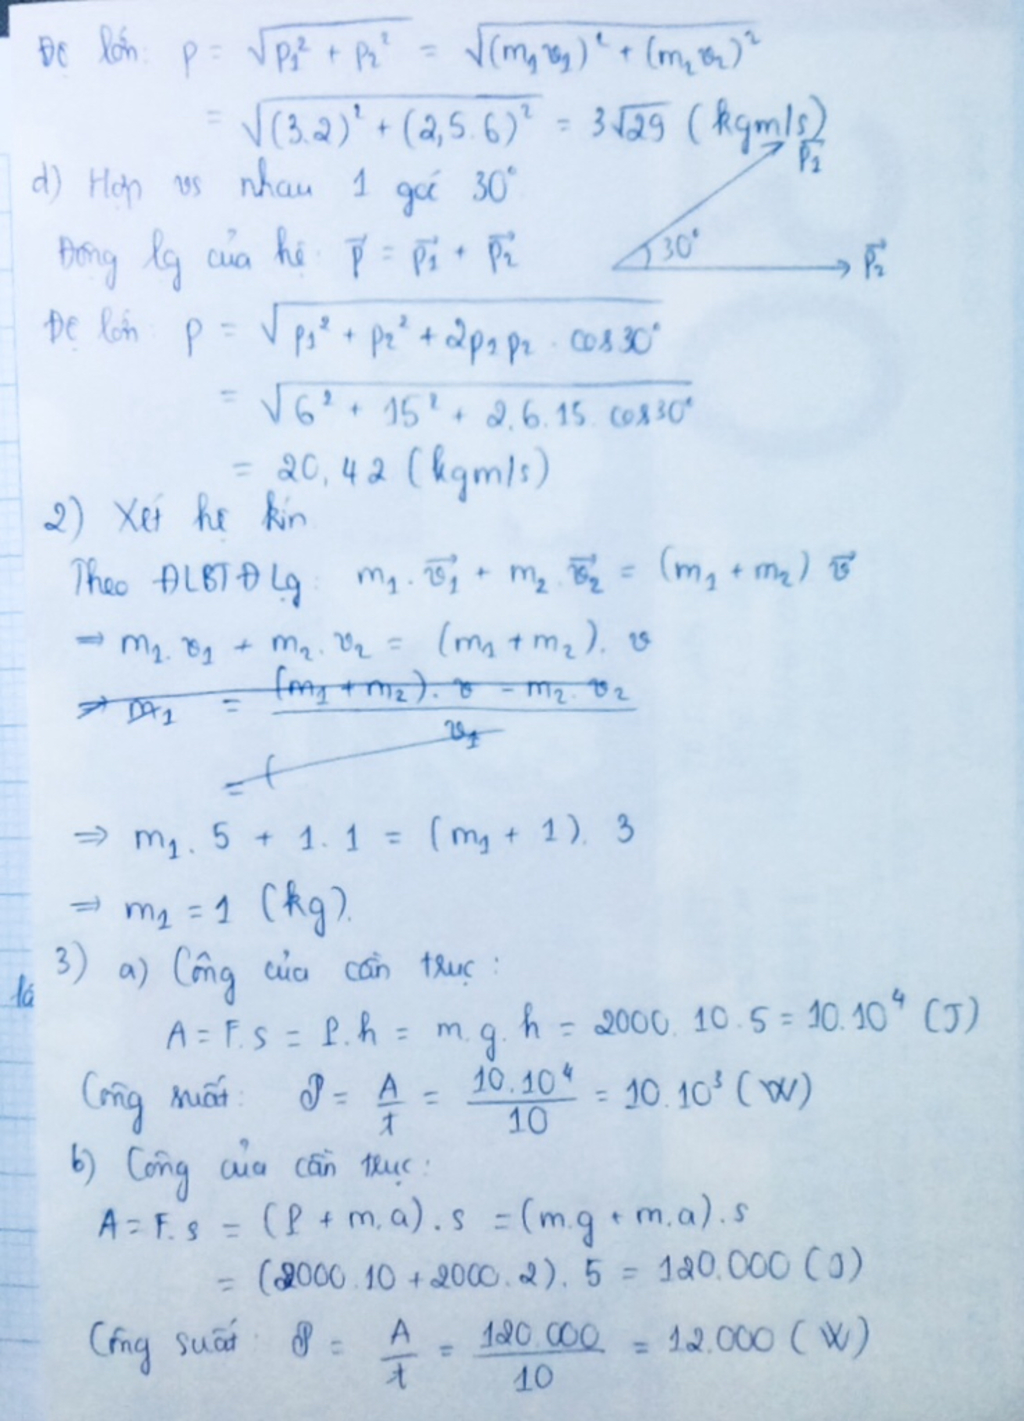 Độ lớn: p = √(p₁² + p₂²) = √((m₁v₁)² + (m₂v₂)²)
= √((3.2)² + (2,5.6)²) = 3√29 (kgm/s)
d) Hợp vs nhau 1 góc 30°
Động lg của hệ: p⃗ = p⃗₁ + p⃗₂
p⃗₁
30°
p⃗₂
Độ lớn: p = √(p₁² + p₂² + 2p₁p₂ . cos30°)
= √(6² + 15² + 2.6.15. cos30°)
= 20,42 (kgm/s)
2) Xét hệ kín
Theo ĐLBTĐLg: m₁.v⃗₁ + m₂.v⃗₂ = (m₁ + m₂) v⃗
⇒ m₁.v₁ + m₂.v₂ = (m₁ + m₂). v
⇒ m₁ = (m₁ + m₂). v - m₂. v₂ / v₁
= (
⇒ m₁. 5 + 1. 1 = (m₁ + 1). 3
⇒ m₁ = 1 (kg).
3) a) Công của cần trục:
A = F.s = P.h = m.g.h = 2000.10.5 = 10.10⁴ (J)
Công suất: 𝒫 = A/t = 10.10⁴/10 = 10.10³ (W)
b) Công của cần trục:
A = F.s = (P + m.a).s = (m.g + m.a).s
= (2000.10 + 2000.2). 5 = 120.000 (J)
Công suất: 𝒫 = A/t = 120.000/10 = 12.000 (W)